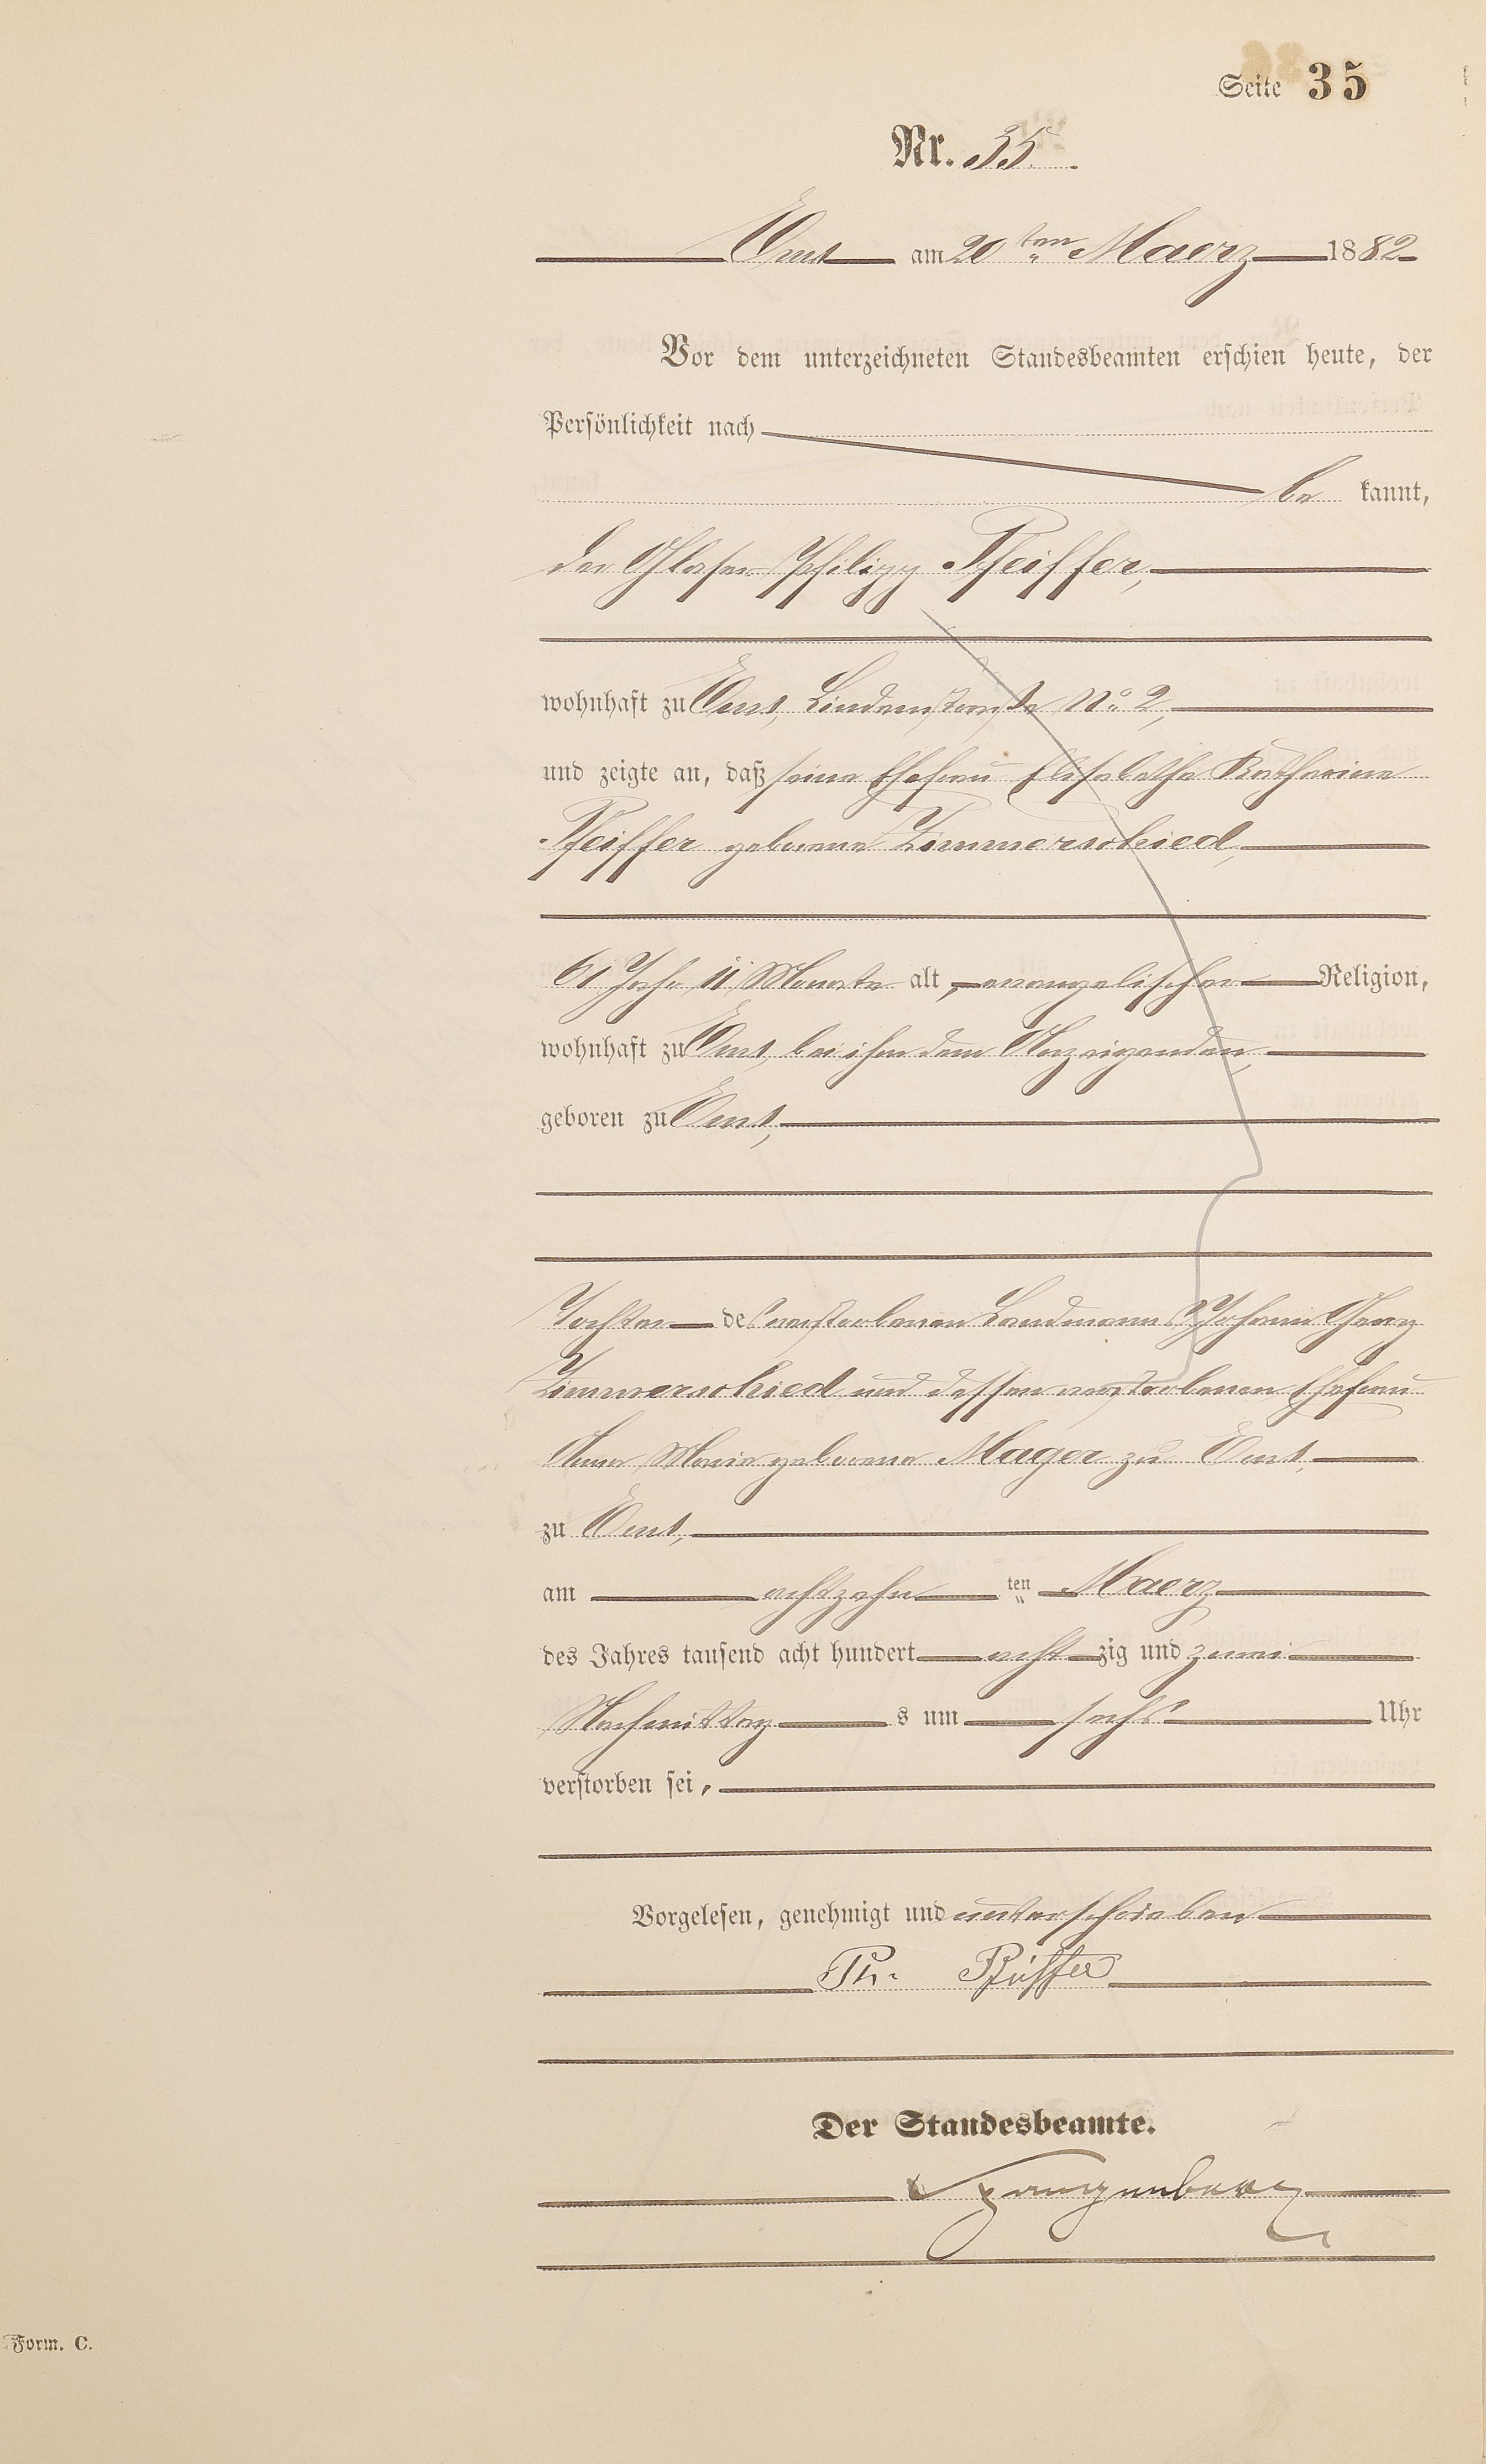 Seite 35
Nr. 35.
Ems am 20ten Maerz 1882
Vor dem unterzeichneten Standesbeamten erschien heute, der
Persönlichkeit nach
be kannt,
der Glaser Philipp Pfeiffer,
wohnhaft zu Ems, Lindenstraße No. 2,
und zeigte an, daß seine Ehefrau Elisabethe Katharine
Pfeiffer geborene Zimmerschied,
61 Jahr 11 Monate alt, evangelischer Religion,
wohnhaft zu Ems, bei ihm dem Anzeigenden,
geboren zu Ems,
Tochter des verstorbenen Landmann Johann Georg
Zimmerschied und dessen verstorbenen Ehefrau
Anna Marie geborene Mager zu Ems,
zu Ems,
am achtzehn ten Maerz
des Jahres tausend acht hundert acht zig und zwei
Nachmittag s um sechs Uhr
verstorben sei,
Vorgelesen, genehmigt und unterschrieben
Ph. Pfeiffer
Der Standesbeamte.
Spangenberg
Form. C.